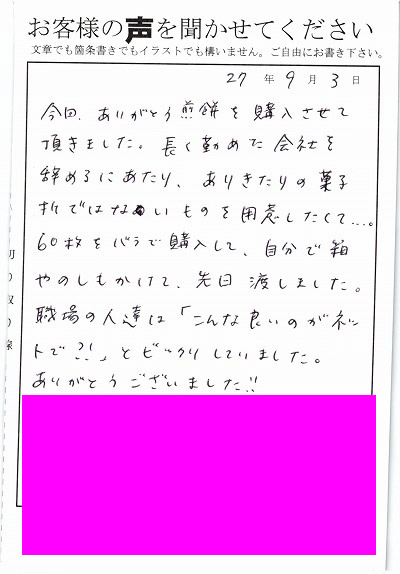 お客様の声を聞かせてください
文章でも箇条書きでもイラストでも構いません。ご自由にお書き下さい。
27年9月3日
今回、ありがとう煎餅を購入させて
頂きました。長く勤めた会社を
辞めるにあたり、ありきたりの菓子
折ではないものを用意したくて…。
60枚をバラで購入して、自分で箱
やのしもかけて、先日渡しました。
職場の人達は「こんな良いのがネッ
トで?!」とビックリしていました。
ありがとうございました!!
切り取り線